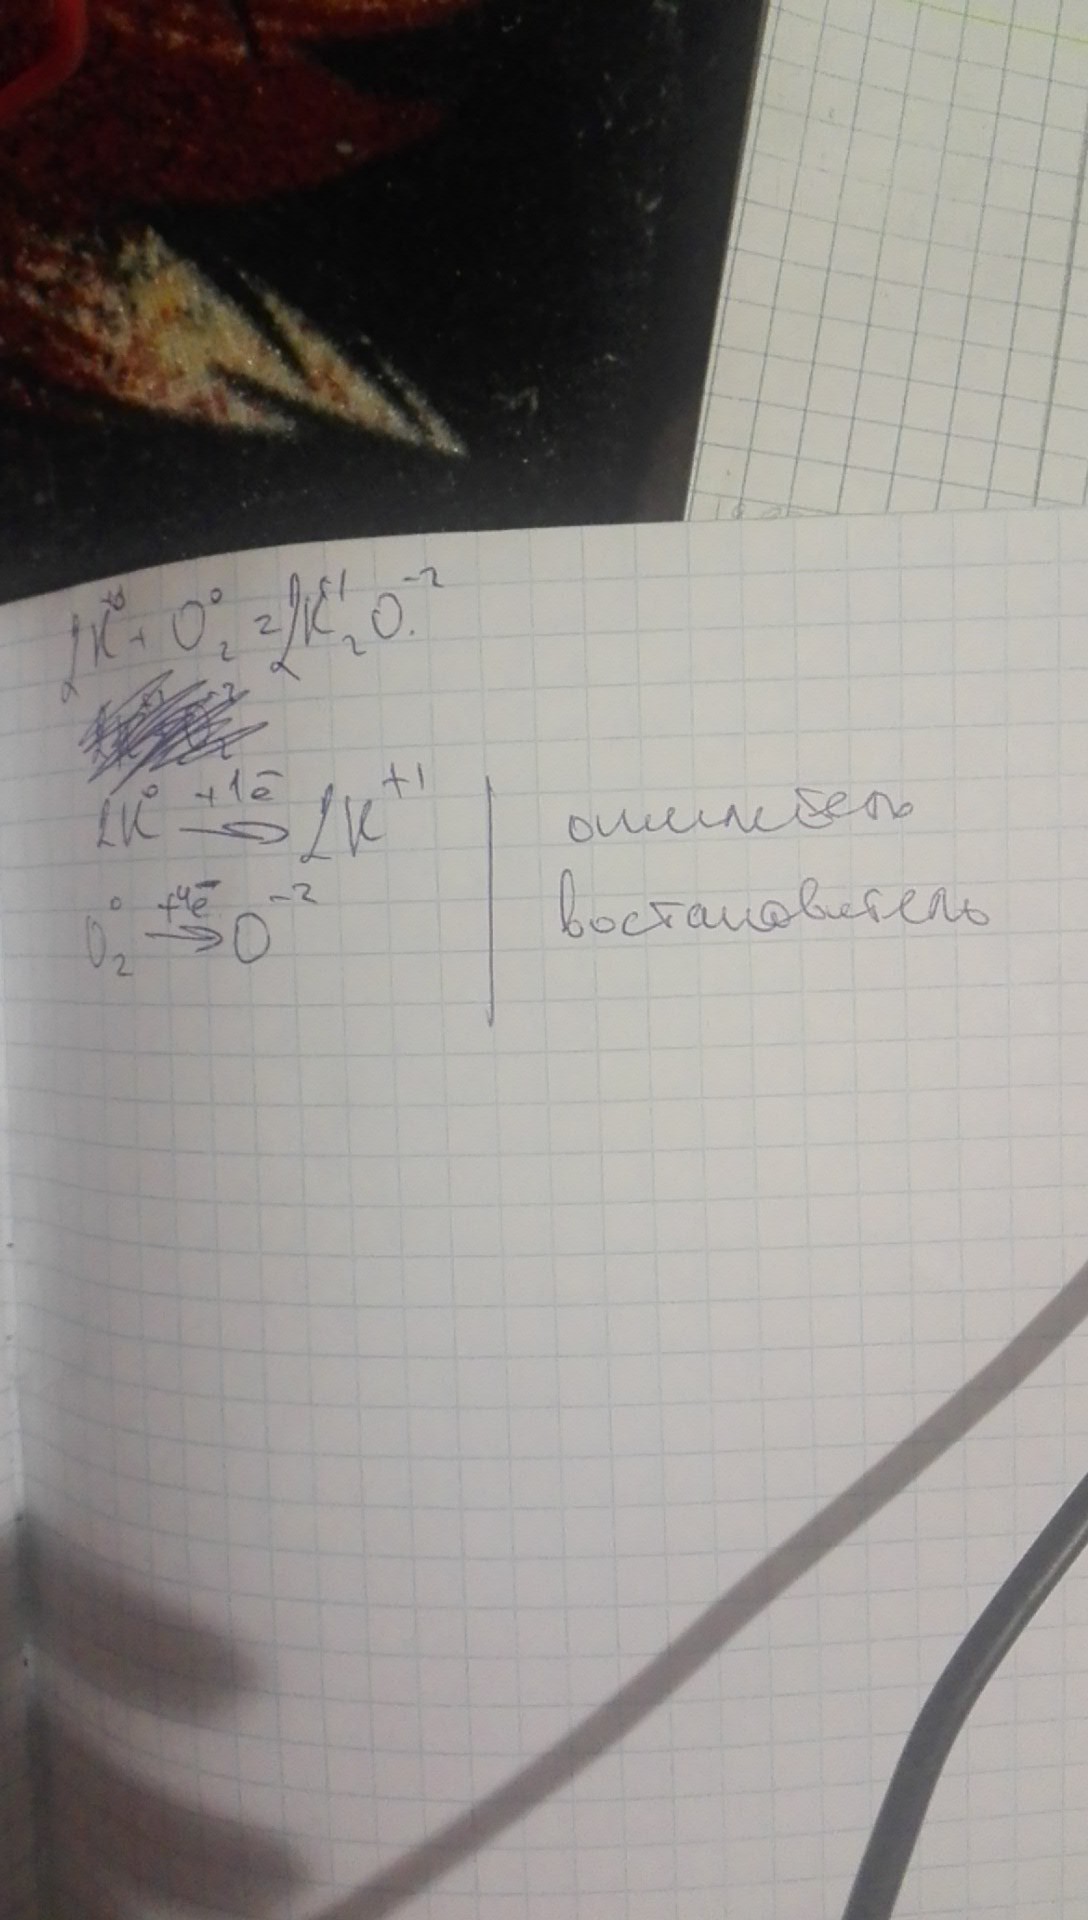 2K⁰ + O⁰₂ = 2K⁺¹₂O⁻².
2K⁰ +1ē → 2K⁺¹ | окислитель
O₂⁰ +4ē → O⁻² | востановитель